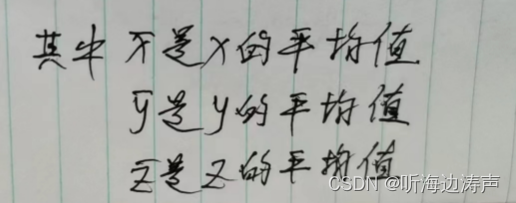 其中 x̄是x的平均值
ȳ是y的平均值
z̄是z的平均值
CSDN @听海边涛声